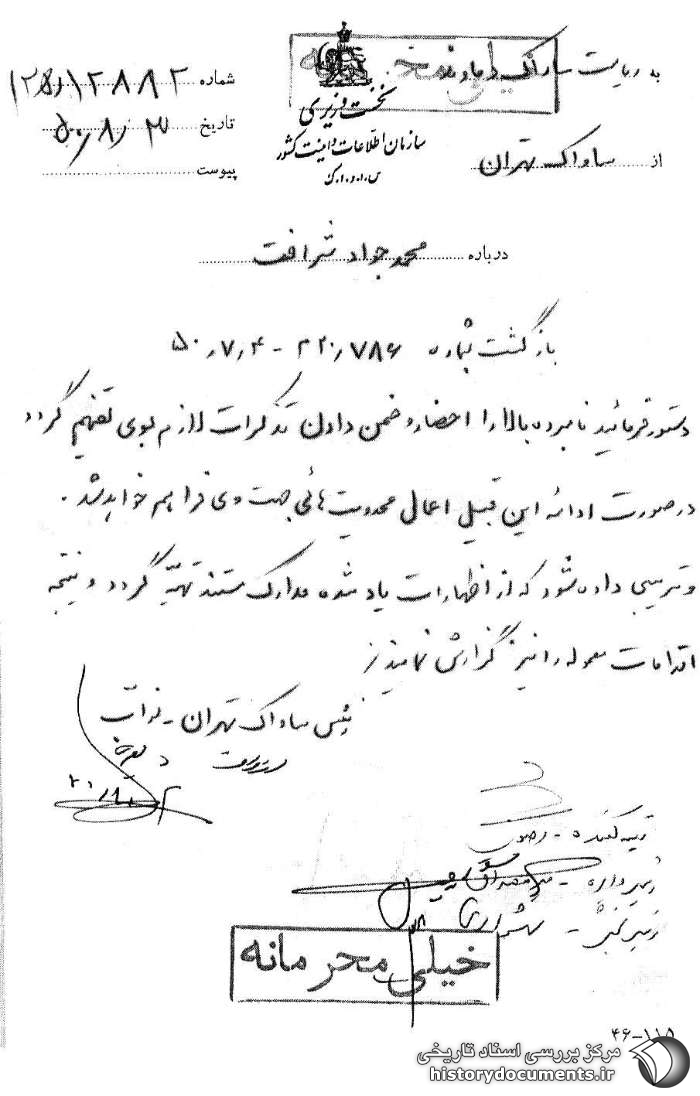 خیلی محرمانه
به ریاست ساواک دماوند
نخست وزیری
سازمان اطلاعات و امنیت کشور
س.ا.و.ا.ک
از ساواک تهران
شماره ۱۲۸۸۲
تاریخ ۵۰/۸/۳
پیوست
درباره محمد جواد شرافت
بازگشت بشماره ۷۸۶ - ۵۰/۷/۴
دستور فرمائید نامبرده بالا را احضار و ضمن دادن تذکرات لازم بوی تفهیم گردد
در صورت ادامه این قبیل اعمال محدودیت هائی جهت وی فراهم خواهد شد.
و ترتیبی داده شود که از اظهارات یاد شده مدارک مستند تهیه گردد و نتیجه
اقدامات معموله را نیز گزارش نمایند
رئیس ساواک تهران - نواب
تهیه کننده -
رهبر
خیلی محرمانه
۴۶-۱۱۵
مرکز بررسی اسناد تاریخی
historydocuments.ir